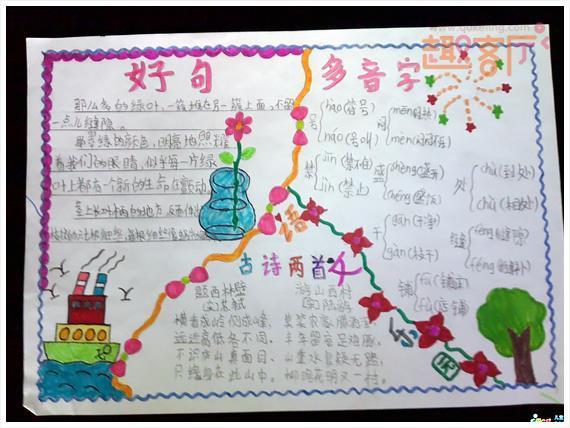 www.qukeking.com
趣客厅
好句
那么多的绿叶，一簇堆在另一簇上面，不留
一点儿缝隙。
翠绿的颜色，明亮地照耀
着我们的眼睛，似乎每一片绿
叶上都有一个新的生命在颤动
多音字
号
hào(符号)
háo(号叫)
闷
mēn
mèn
禁
jīn(禁不住)
jìn(禁止)
盛
shèng
chéng(盛饭)
处
chù(到处)
chǔ(相处)
干
gān(干净)
gàn(枝干)
缝
fèng
féng
铺
fū
fù(店铺)
语
古诗两首
题西林壁
横看成岭侧成峰，
远近高低各不同。
不识庐山真面目，
只缘身在此山中。
游山西村
莫笑农家腊酒浑，
丰年留客足鸡豚。
山重水复疑无路，
柳暗花明又一村。